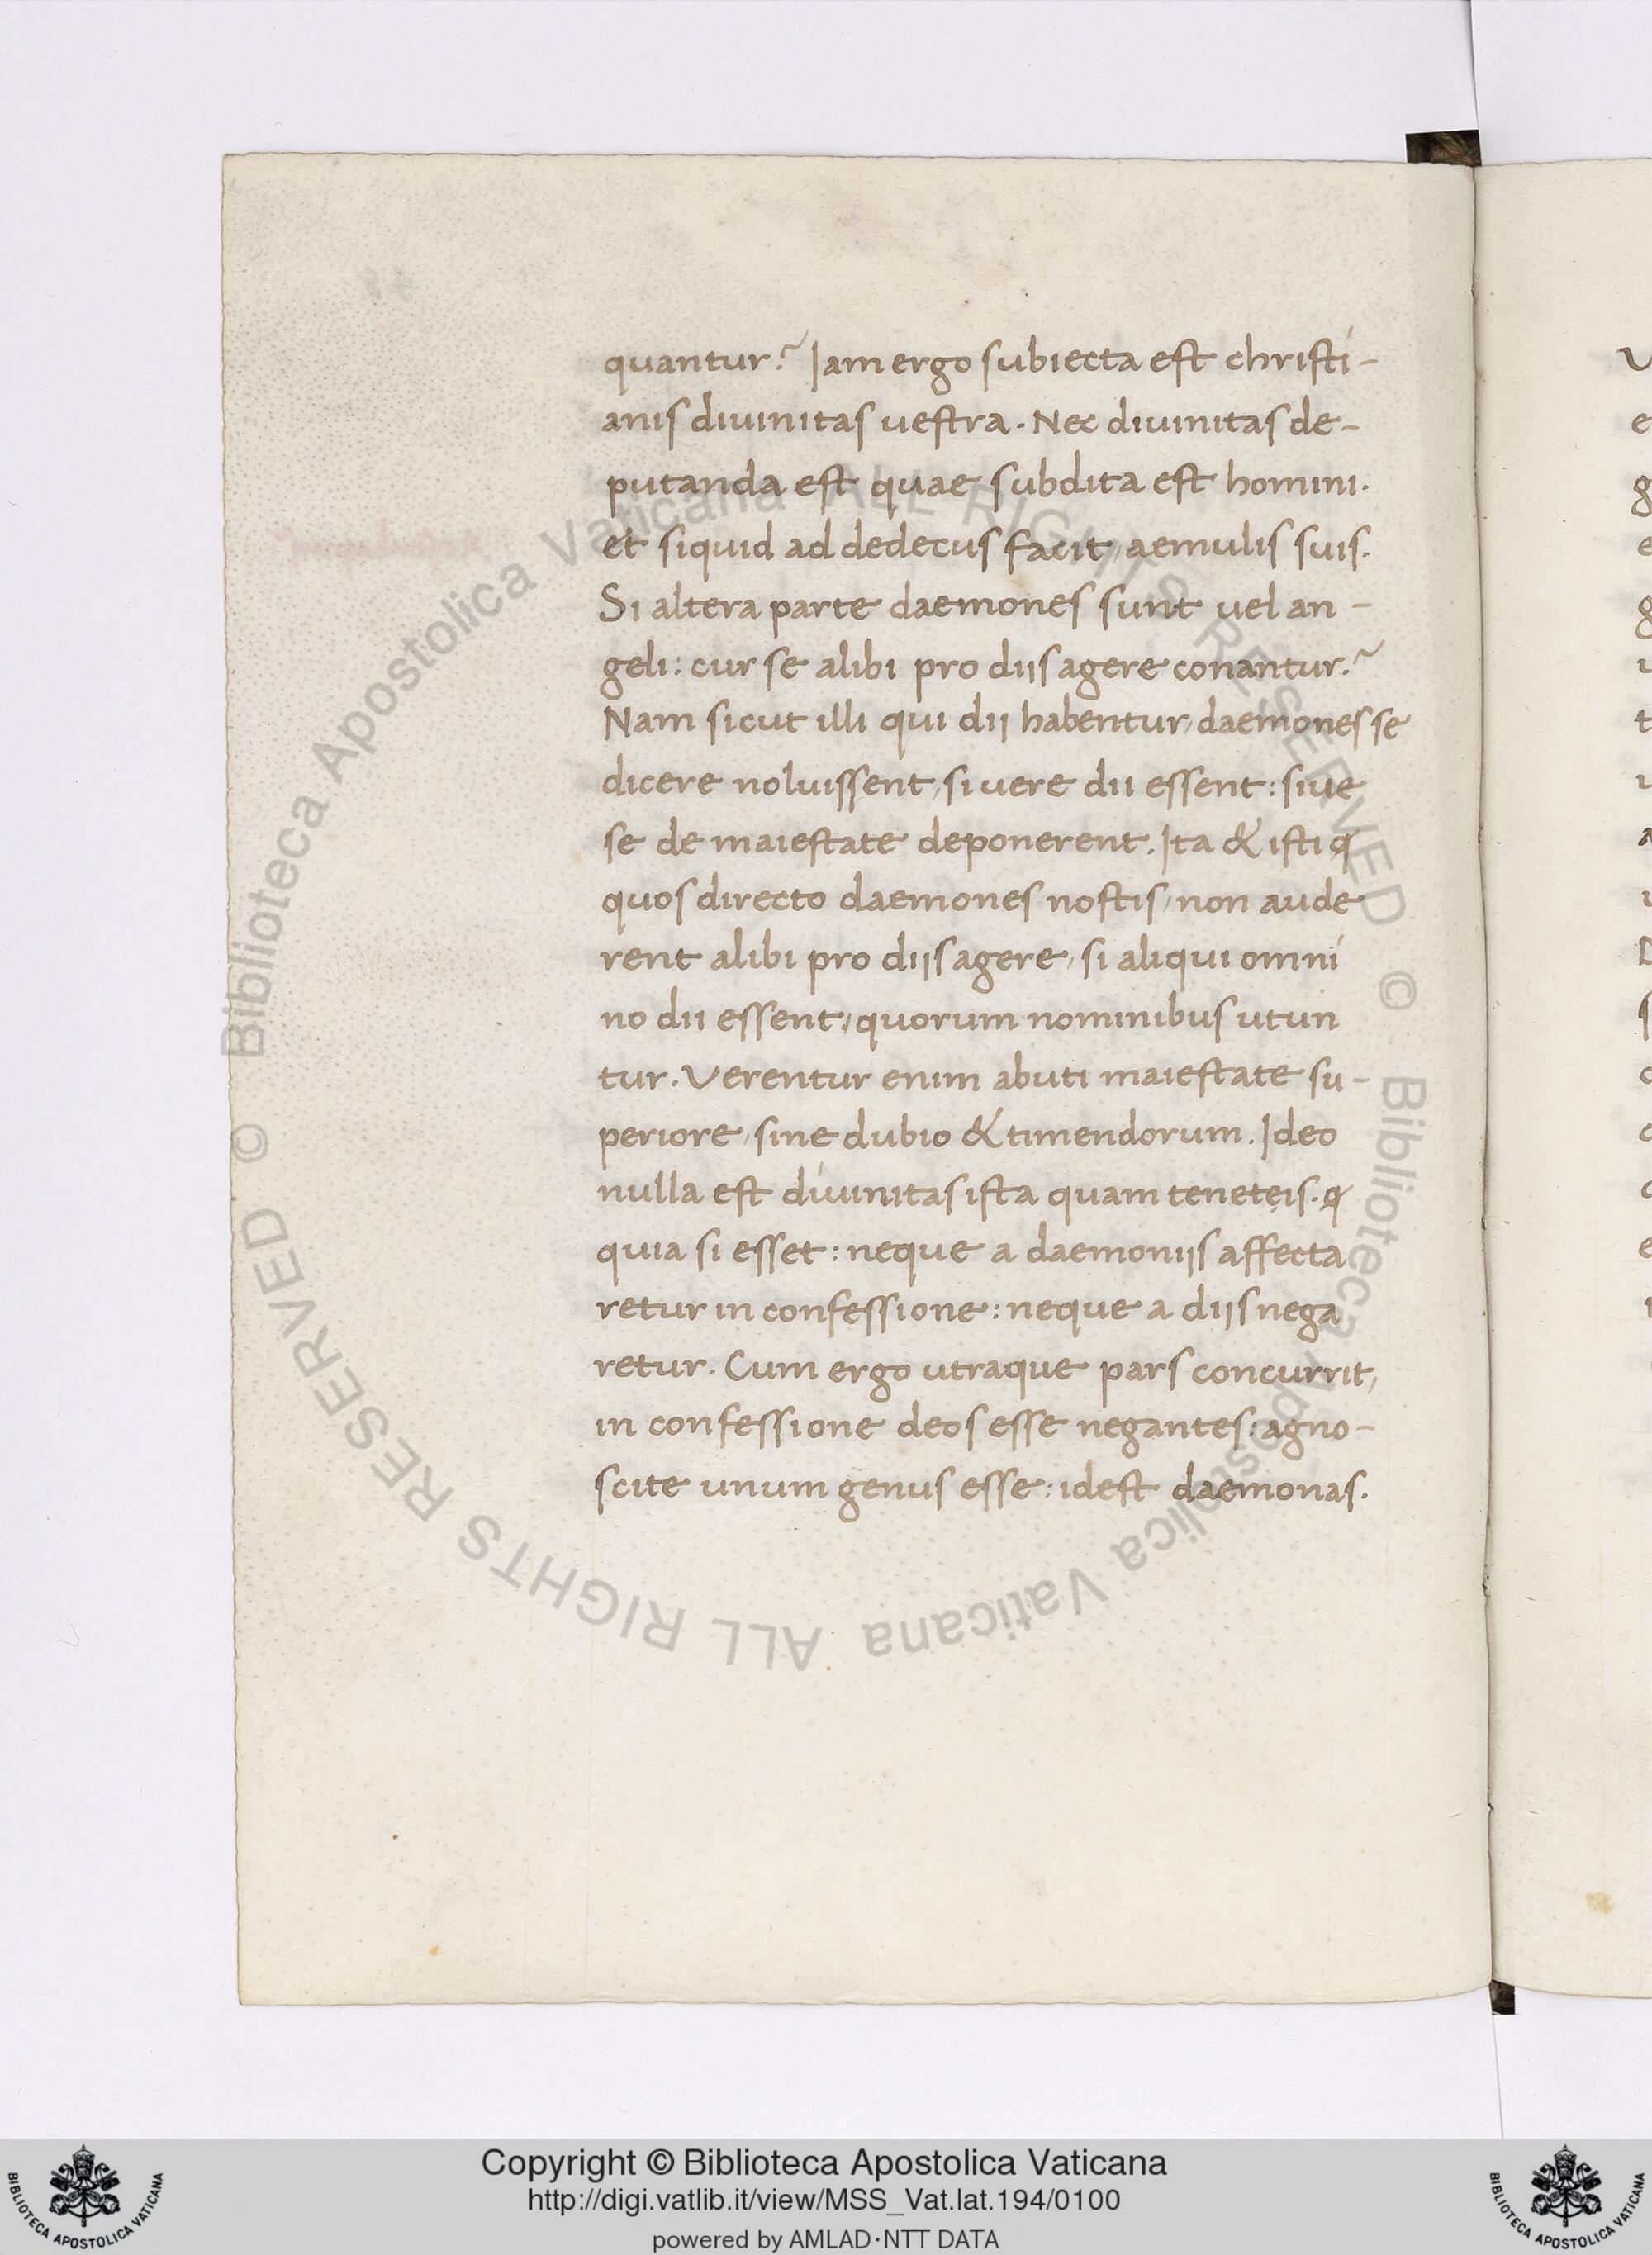 quantur? Iam ergo subiecta est christi-
anis diuinitas uestra. Nec diuinitas de-
putanda est quae subdita est homini.
et siquid ad dedecus facit, aemulis suis.
Si altera parte daemones sunt uel an-
geli: cur se alibi pro diis agere conantur?
Nam sicut illi qui dii habentur, daemones se
dicere noluissent, si uere dii essent: siue
se de maiestate deponerent. Ita & isti q
quos directo daemones nostis, non aude
rent alibi pro diis agere, si aliqui omni
no dii essent, quorum nominibus utun
tur. Verentur enim abuti maiestate su-
periore, sine dubio & timendorum. Ideo
nulla est diuinitas ista quam teneteis. q
quia si esset: neque a daemoniis affecta
retur in confessione: neque a diis nega
retur. Cum ergo utraque pars concurrit,
in confessione deos esse negantes: agno-
scite unum genus esse: idest daemonas.
© Biblioteca Apostolica Vaticana ALL RIGHTS RESERVED © Biblioteca Apostolica Vaticana ALL RIGHTS RESERVED
Copyright © Biblioteca Apostolica Vaticana
http://digi.vatlib.it/view/MSS_Vat.lat.194/0100
powered by AMLAD·NTT DATA
BIBLIOTECA APOSTOLICA VATICANA
BIBLIOTECA APOSTOLICA VATICANA